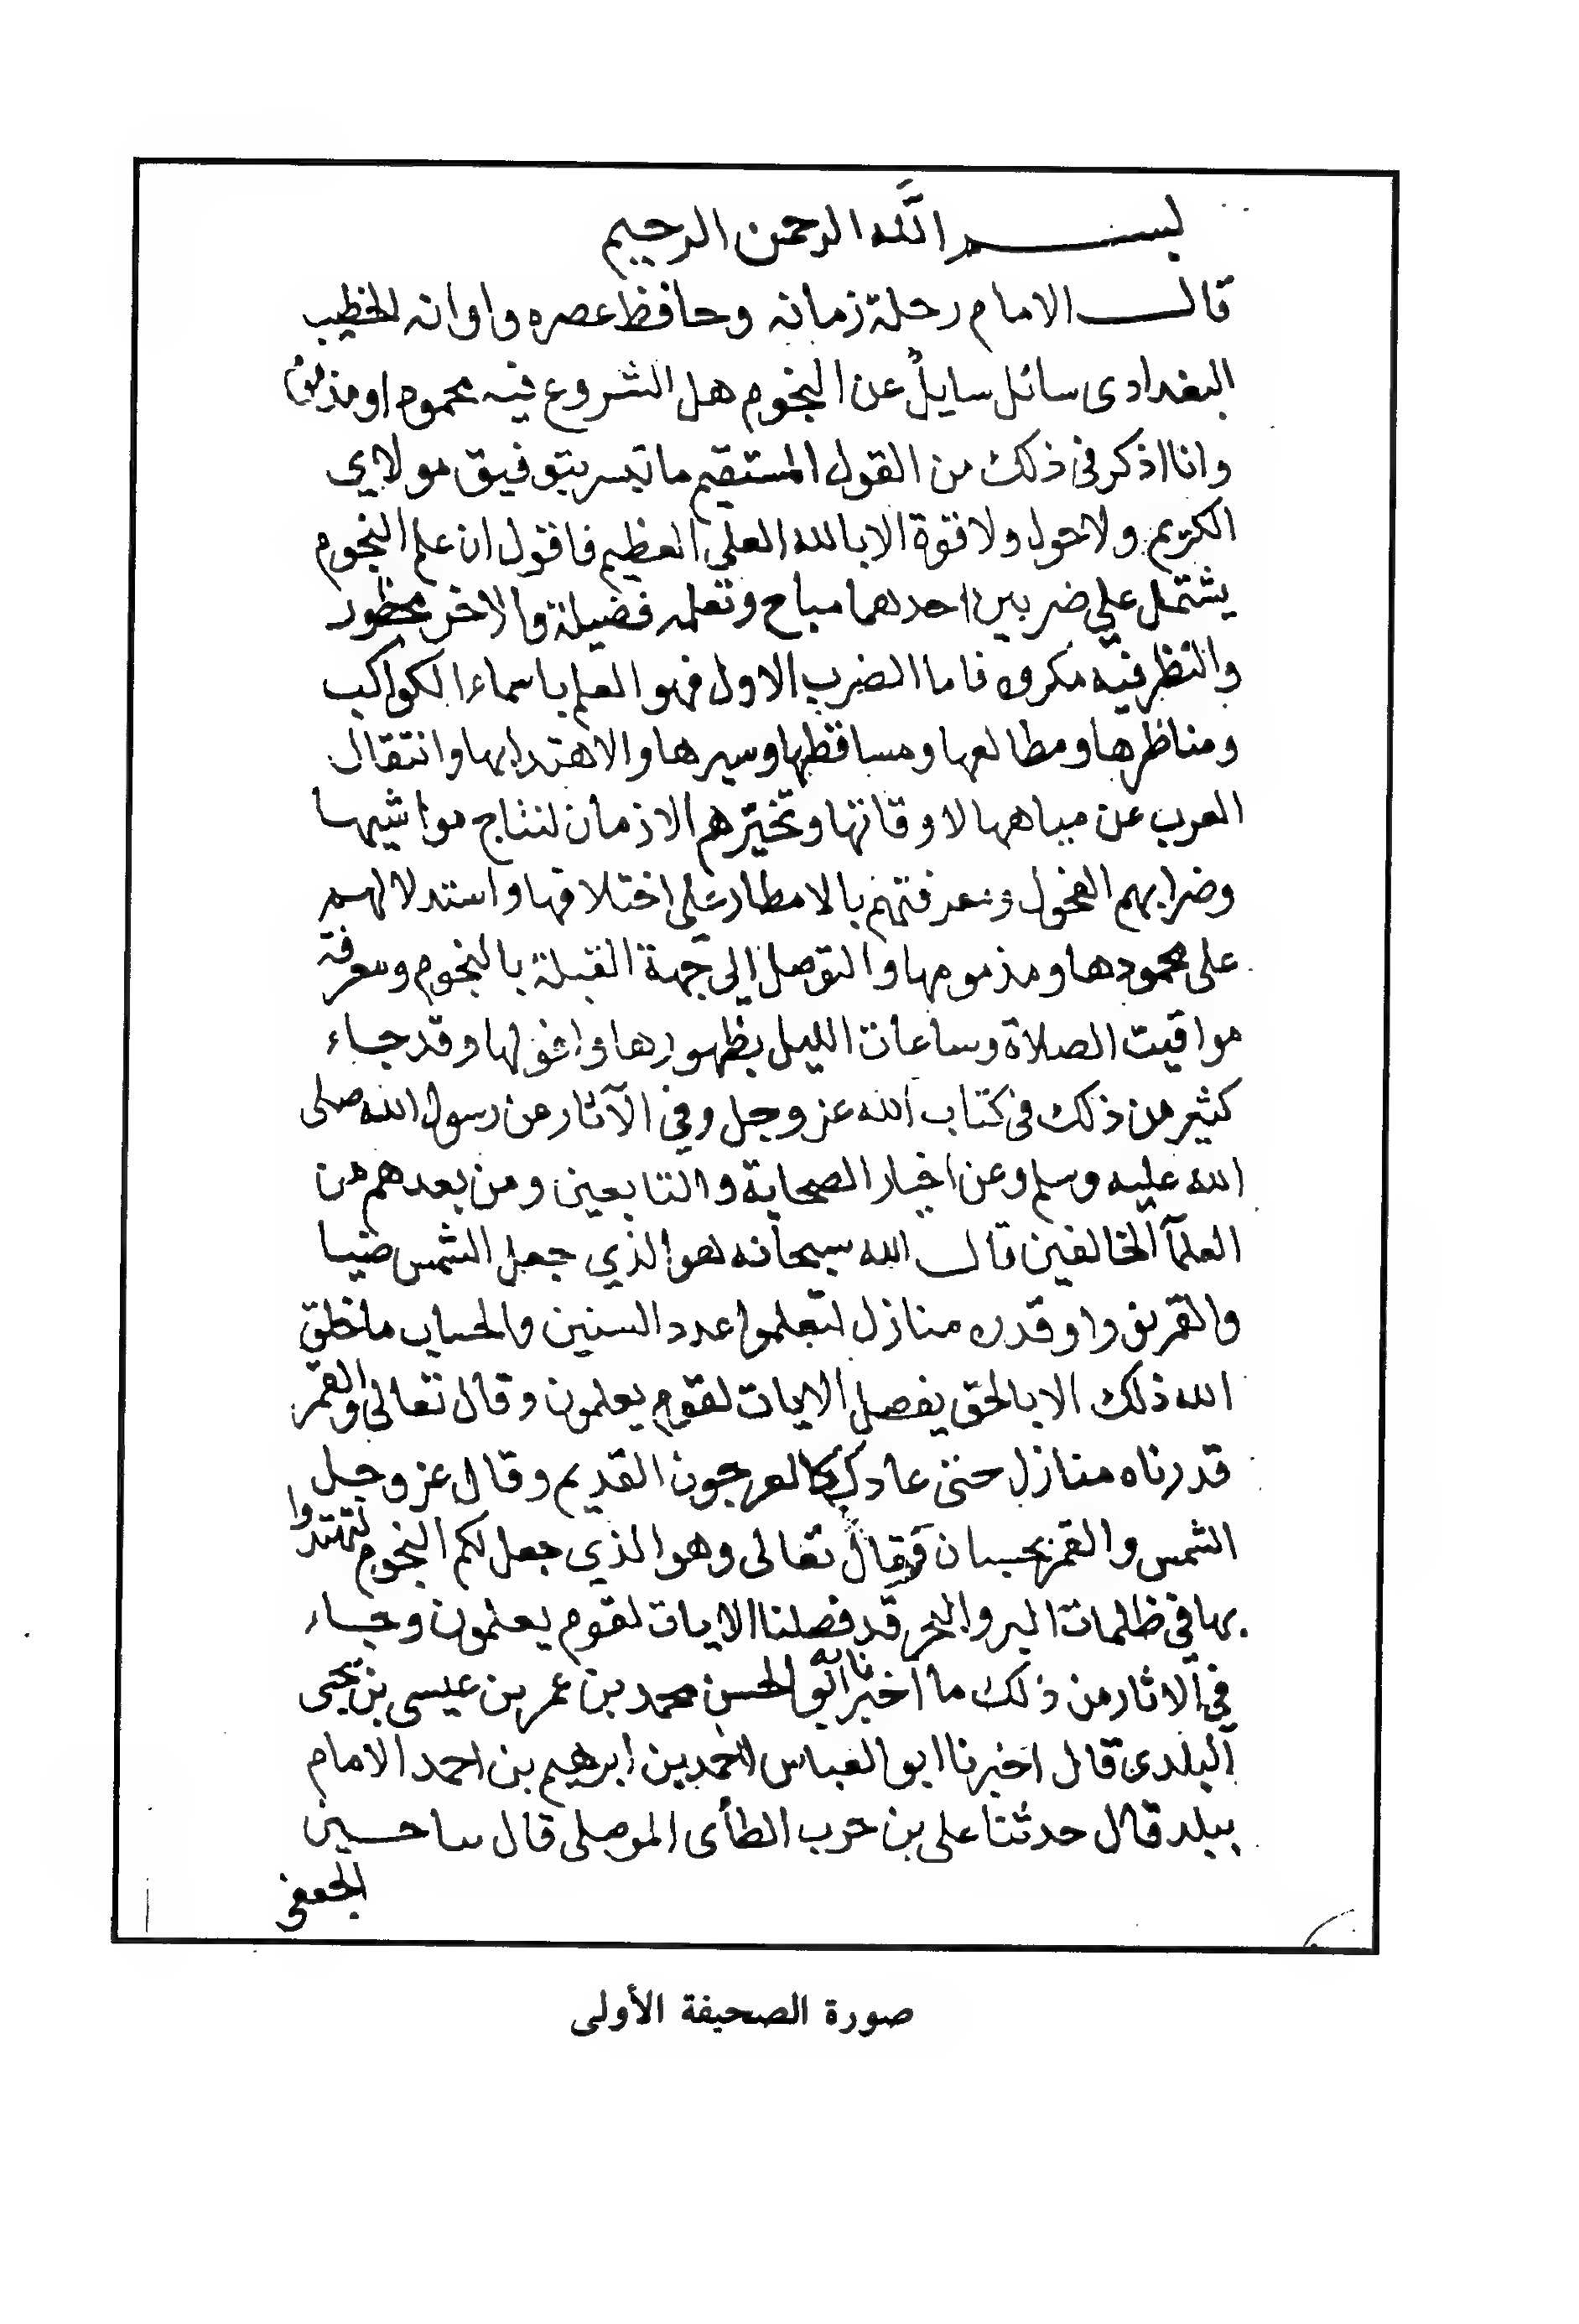 بسم الله الرحمن الرحيم
قال الامام رحلة زمانه وحافظ عصره واوانه الخطيب
البغدادى سائل سايلٌ عن النجوم هل الشروع فيه محموم او مذموم
وانا اذكر فى ذلك من القول المستقيم ما تيسر بتوفيق مولاي
الكريم ولا حول ولا قوة الا بالله العلي العظيم فاقول ان علم النجوم
يشتمل علي ضربين احدهما مباح وتعلمه فضيلة والاخر محظور
والنظر فيه مكروه فاما الضرب الاول فهو العلم باسماء الكواكب
ومناظرها ومطالعها ومساقطها وسيرها والاهتدا بها وانتقال
العرب عن مياهها لاوقاتها وتخيّرهم الازمان لنتاج مواشيها
وضرابهم الفحول ومعرفتهم بالامطار علي اختلافها واستدلالهم
على محمودها ومذمومها والتوصل إلى جهة القبلة بالنجوم ومعرفة
مواقيت الصلاة وساعات الليل بظهورها وافولها وقد جاء
كثير من ذلك فى كتاب الله عز وجل وفي الآثار عن رسول الله صلى
الله عليه وسلم وعن اخيار الصحابة والتابعين ومن بعدهم من
العلمآ الخالفين قال الله سبحانه هو الذي جعل الشمس ضيا
والقمر نورا وقدره منازل لتعلموا عدد السنين والحساب ما خلق
الله ذلك الا بالحق يفصل الايات لقوم يعلمون وقال تعالى والقمر
قدرناه منازل حتى عاد كالعرجون القديم وقال عز وجل
الشمس والقمر بحسبان وقال تعالى وهو الذي جعل لكم النجوم لتهتدوا
بها في ظلمات البر والبحر قد فصلنا الايات لقوم يعلمون وجاء
في الاثار من ذلك ما اخبرنا به ابو الحسن محمد بن عمر بن عيسى بن يحيى
البلدى قال اخبرنا ابو العباس احمد بن ابرهيم بن احمد الامام
ببلد قال حدثنا على بن حرب الطأى الموصلى قال سا حسين
الجعفى
صورة الصحيفة الأولى